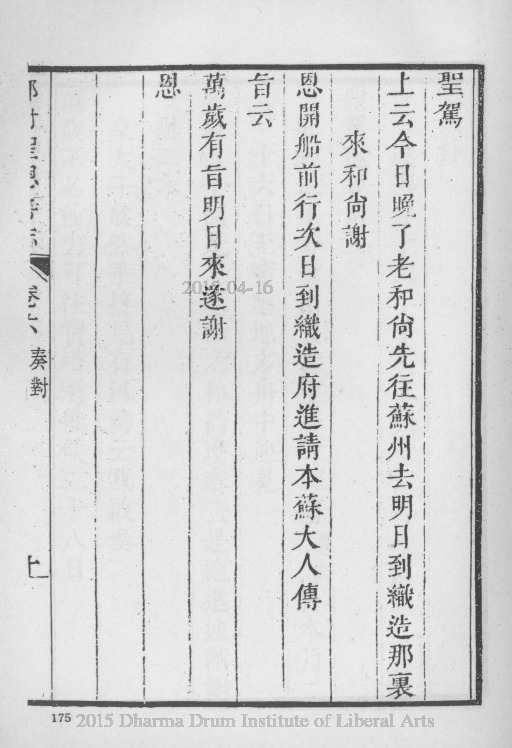 聖駕
上云今日晚了老和尚先往蘇州去明日到織造那裏
來和尚謝
恩開船前行次日到織造府進請本蘇大人傳
旨云
萬歲有旨明日來遂謝
恩
聖恩寺志
卷六
奏對
十一
2019-04-16
175
2015 Dharma Drum Institute of Liberal Arts